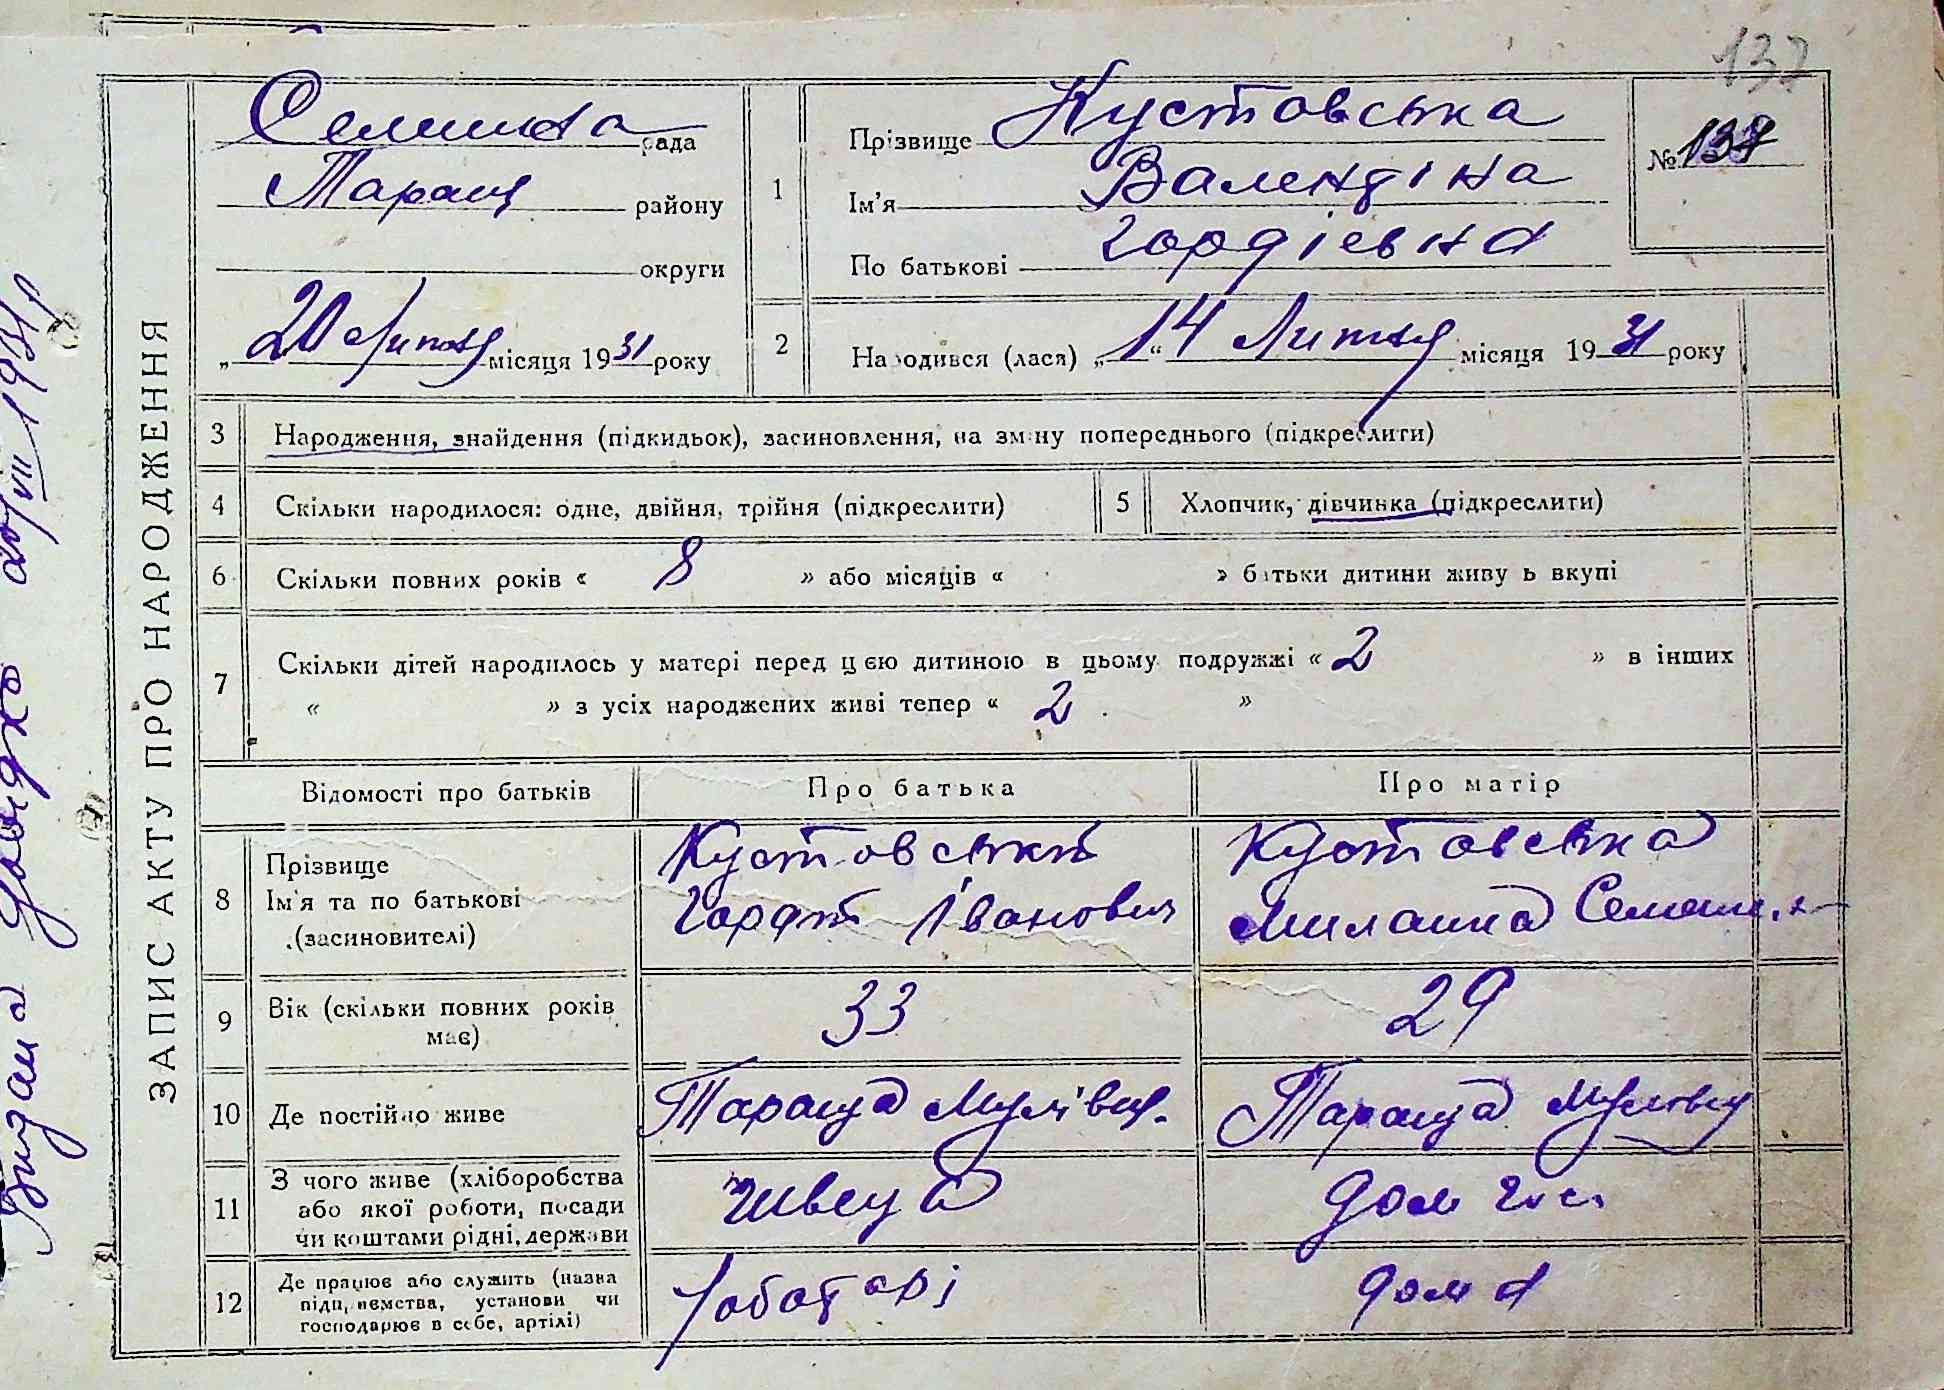 137
ЗАПИС АКТУ ПРО НАРОДЖЕННЯ
Селищна рада
Таращ району
округи
„20 Лютня місяця 1931 року
1
Прізвище Кустовська
Ім'я Валентіна
По батькові Гордіевна
№ 137
2
Народився (лася) „14“ Лютня місяця 1931 року
3 Народження, знайдення (підкидьок), засиновлення, на зміну попереднього (підкреслити)
4 Скільки народилося: одне, двійня, трійня (підкреслити)
5 Хлопчик, дівчинка (підкреслити)
6 Скільки повних років « 8 » або місяців « » батьки дитини живуть вкупі
7 Скільки дітей народилось у матері перед цією дитиною в цьому подружжі « 2 » в інших
« » з усіх народжених живі тепер « 2 »
Відомості про батьків Про батька Про матір
8 Прізвище
Ім'я та по батькові
(засиновителі)
Кустовський
Гордій Іванович
Кустовська
Милания
9 Вік (скільки повних років
має)
33
29
10 Де постійно живе
Тараща
Тараща
11 З чого живе (хліборобства
або якої роботи, посади
чи коштами рідні, держави
Швеця
Дом гос.
12 Де працює або служить (назва
підприємства, установи чи
господарює в себе, артілі)
дома